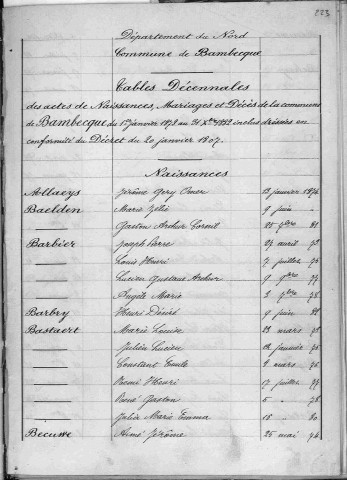 223
Département du Nord
Commune de Bambecque
Tables Décennales
des actes de Naissances, Mariages et Décès de la commune
de Bambecque du 1er janvier 1873 au 31 Xbre 1882 inclus dressées en
conformité du Décret du 20 janvier 1807.
Naissances
Allaeys Jérôme Gery Omer 13 janvier 1874
Baelden Marie Zélie 9 juin "
Gaston Arthur Corneil 25 81
Barbier Joseph Pierre 27 avril 73
Louis Henri 7 juillet 75
Lucien Gustave Arthur 9 77
Angèle Marie 3 78
Barbry Henri Désiré 9 juin 81
Bastaert Marie Louise 23 mars 73
Julien Lucien janvier 75
Constant Emile 2 mars 76
Rémi Henri 17 juillet 77
René Gaston 5 " 78
Julia Marie Emma 18 " 80
Becuwe Aimé Jérôme 25 mai 74